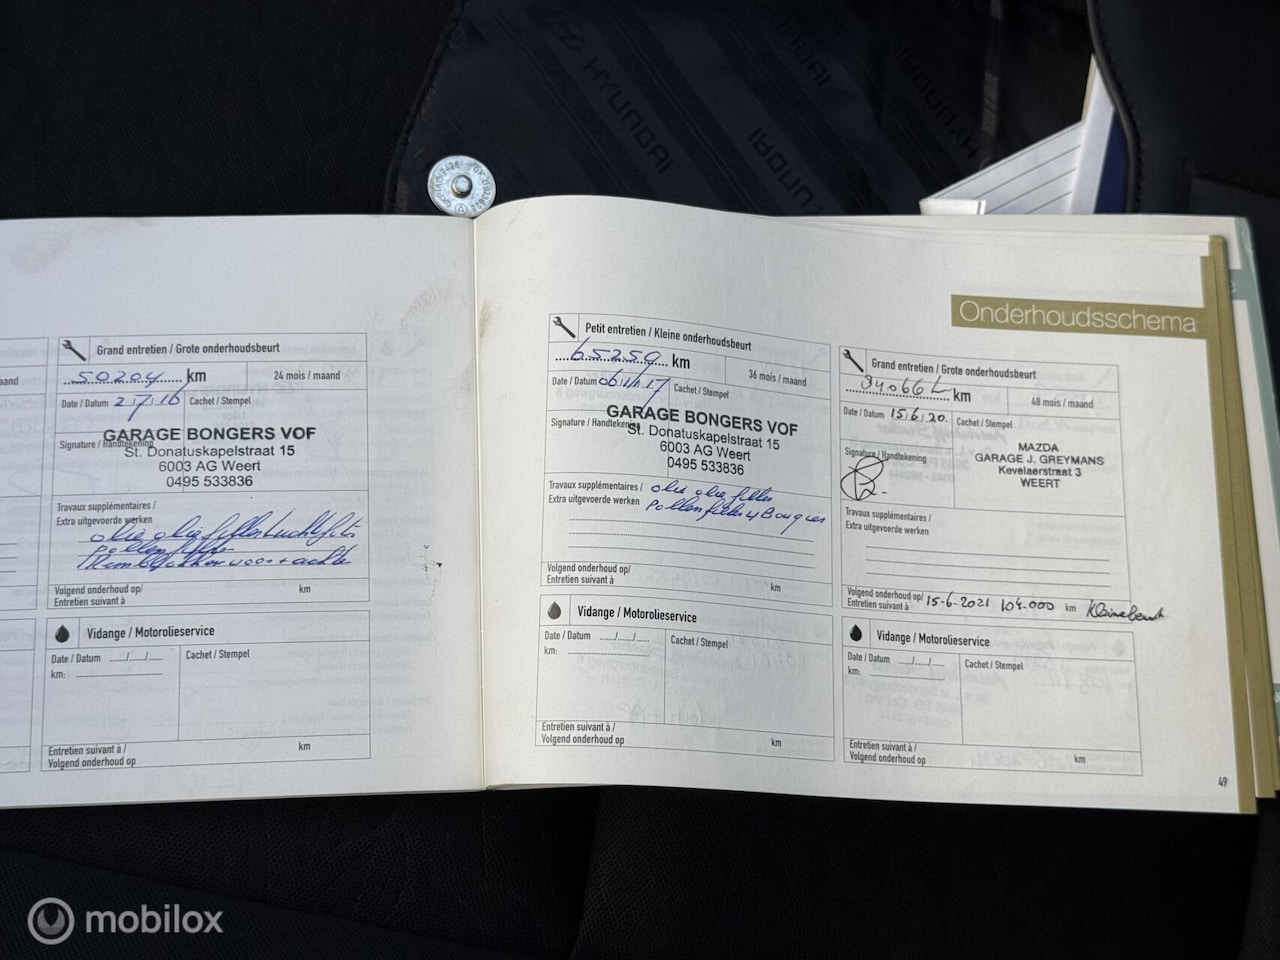 HYUNDAI
HYUNDAI
HYUNDAI
Onderhoudsschema
aand
Grand entretien / Grote onderhoudsbeurt
50204 km
24 mois / maand
Date / Datum 2/7/16
Cachet / Stempel
Signature / Handtekening
GARAGE BONGERS VOF
St. Donatuskapelstraat 15
6003 AG Weert
0495 533836
Travaux supplémentaires /
Extra uitgevoerde werken
olie oliefilter luchtfilter
pollenfilter
Remblokken voor + achter
Volgend onderhoud op/
Entretien suivant à
km
Vidange / Motorolieservice
Date / Datum ..../..../....
Cachet / Stempel
km:
Entretien suivant à /
Volgend onderhoud op
km
Petit entretien / Kleine onderhoudsbeurt
65259 km
36 mois / maand
Date / Datum 06/1/17
Cachet / Stempel
Signature / Handtekening
GARAGE BONGERS VOF
St. Donatuskapelstraat 15
6003 AG Weert
0495 533836
Travaux supplémentaires /
Extra uitgevoerde werken
olie olie filter
Pollenfilter 4 Bougies
Volgend onderhoud op/
Entretien suivant à
km
Vidange / Motorolieservice
Date / Datum ..../..../....
Cachet / Stempel
km:
Entretien suivant à /
Volgend onderhoud op
km
Grand entretien / Grote onderhoudsbeurt
94066 km
48 mois / maand
Date / Datum 15.6.20.
Cachet / Stempel
Signature / Handtekening
MAZDA
GARAGE J. GREYMANS
Kevelaerstraat 3
WEERT
Travaux supplémentaires /
Extra uitgevoerde werken
Volgend onderhoud op/
Entretien suivant à
15-6-2021 104.000 km Kleine beurt
Vidange / Motorolieservice
Date / Datum ..../..../....
Cachet / Stempel
km:
Entretien suivant à /
Volgend onderhoud op
km
49
mobilox